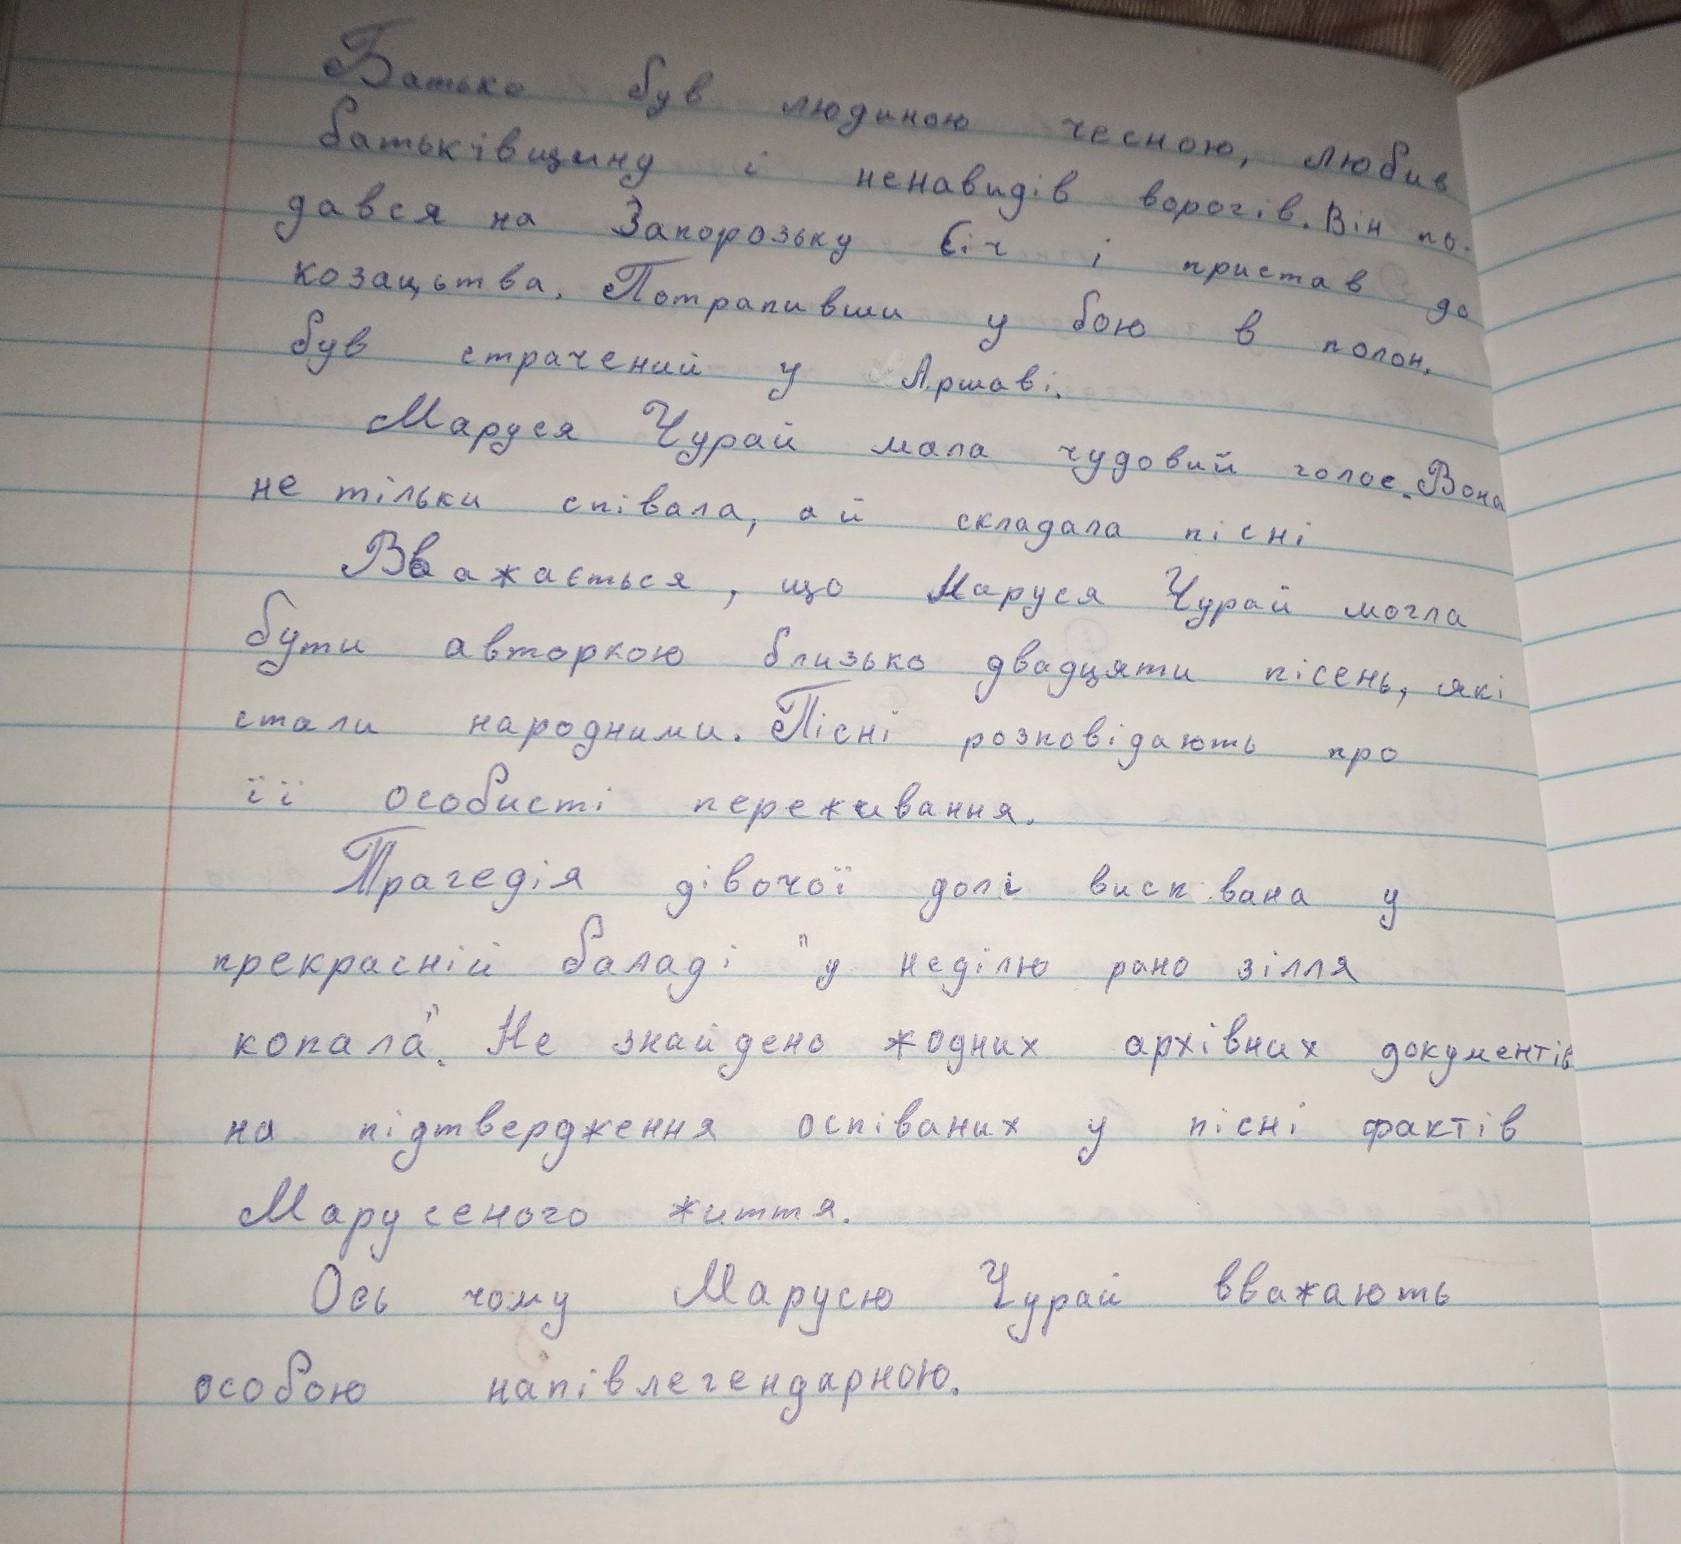 Батько був людиною чесною, любив
батьківщину і ненавидів ворогів. Він по-
дався на Запорозьку Січ і пристав до
козацьтва. Потрапивши у бою в полон,
був страчений у Аршаві.
Маруся Чурай мала чудовий голос. Вона
не тільки співала, а й складала пісні
Вважається, що Маруся Чурай могла
бути авторкою близько двадцяти пісень, які
стали народними. Пісні розповідають про
її особисті переживання.
Трагедія дівочої долі виспівана у
прекрасній баладі "у неділю рано зілля
копала". Не знайдено жодних архівних документів
на підтвердження оспіваних у пісні фактів
Марусеного життя.
Ось чому Марусю Чурай вважають
особою напівлегендарною.